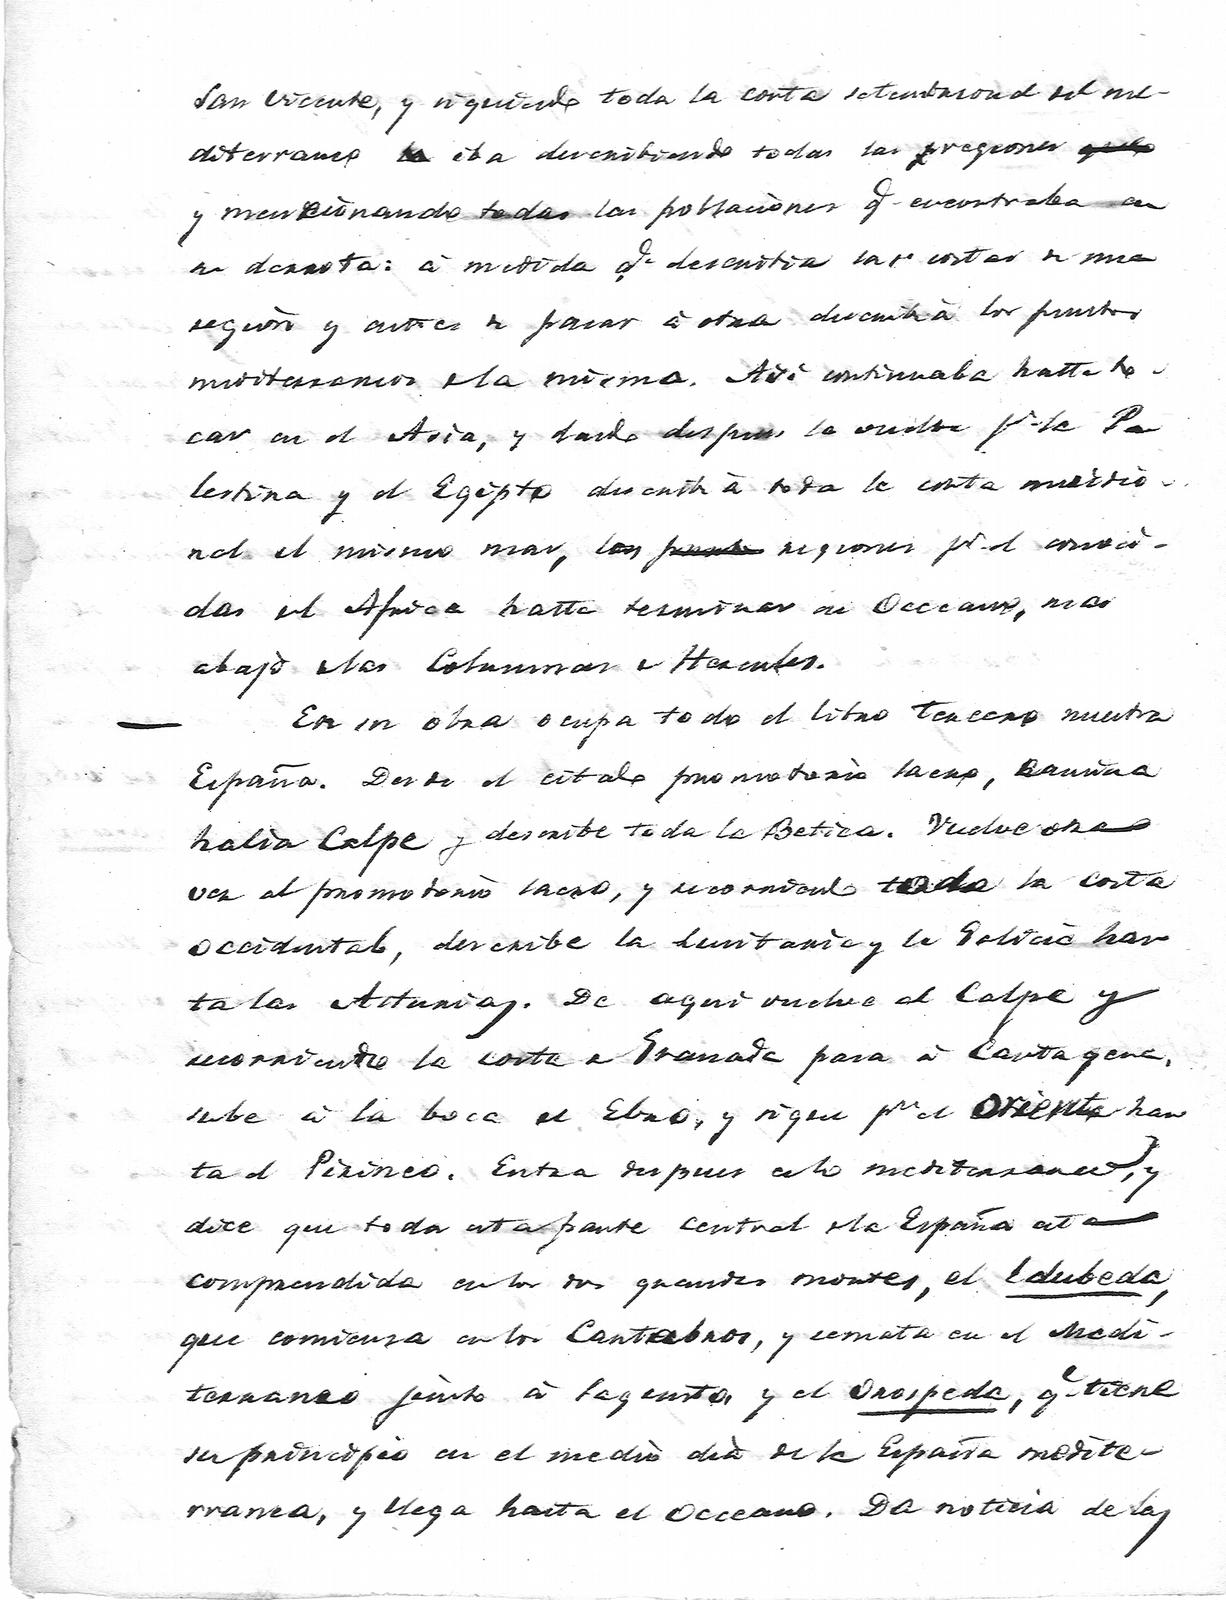 San Vicente, y siguiendo toda la costa setentrional del me-
diterraneo iba describiendo todas las regiones
y mencionando todas las poblaciones q.e encontraba en
su derrota: á medida q.e describia las costas de una
región y antes de pasar á otra describia los puntos
mediterraneos de la misma. Asi continuaba hasta to-
car en el Asia, y dando despues la vuelta p.r la Pa
lestina y el Egipto describia toda la costa meridio-
nal del mismo mar, las regiones p.r el conoci-
das del Africa hasta terminar en Occeano, mas
abajo de las Columnas de Hercules.
En su obra ocupa todo el libro tercero nuestra
España. Desde el citado promotorio sacro, camina
hacia Calpe y describe toda la Betica. Vuelve otra
vez al promotorio sacro, y recorriendo toda la costa
occidental, describe la Lusitania y la Galicia has
ta las Asturias. De aqui vuelve al Calpe y
recorriendo la costa de Granada pasa á Cartagena,
sube á la boca del Ebro, y sigue p.r el Oriente has
ta el Pirineo. Entra despues en lo mediterraneo, y
dice que toda esta parte central de la España está
comprendida en los dos grandes montes, el Idubeda,
que comienza en los Cantabros, y remata en el Medi-
terraneo junto á Sagunto, y el Orospeda, q.e tiene
su principio en el medio dia de la España medite-
rranea, y llega hasta el Occeano. Da noticia de las